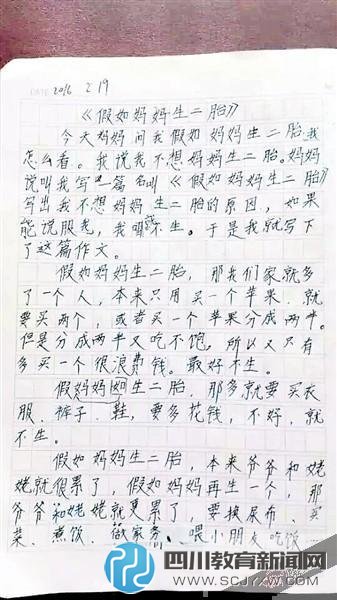 DATE 2016 2 19
《假如妈妈生二胎》
今天妈妈问我假如妈妈生二胎我
怎么看。我说我不想妈妈生二胎。妈妈
说叫我写一篇名叫《假如妈妈生二胎》
写出我不想妈妈生二胎的原因,如果
能说服她,我妈就不生。于是我就写下
了这篇作文。
假如妈妈生二胎,那我们家就多
了一个人,本来只用买一个苹果,就
要买两个,或者买一个苹果分成两半。
但是分成两半又吃不饱,所以又只有
多买一个很浪费钱。最好不生。
假妈妈生二胎,那多就要买衣
服、裤子、鞋,要多花钱,不好,就
不生。
假如妈妈生二胎,本来爷爷和姥
姥就很累了,假如妈妈再生一个,那
爷爷和姥姥就更累了,要换尿布、买
菜、煮饭、做家务、喂小朋友吃饭
四川教育新闻网
WWW.SCJYXW.COM